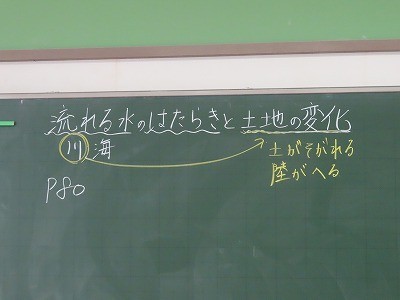 流れる水のはたらきと土地の変化
川 海
土がそがれる
陸がへる
P80